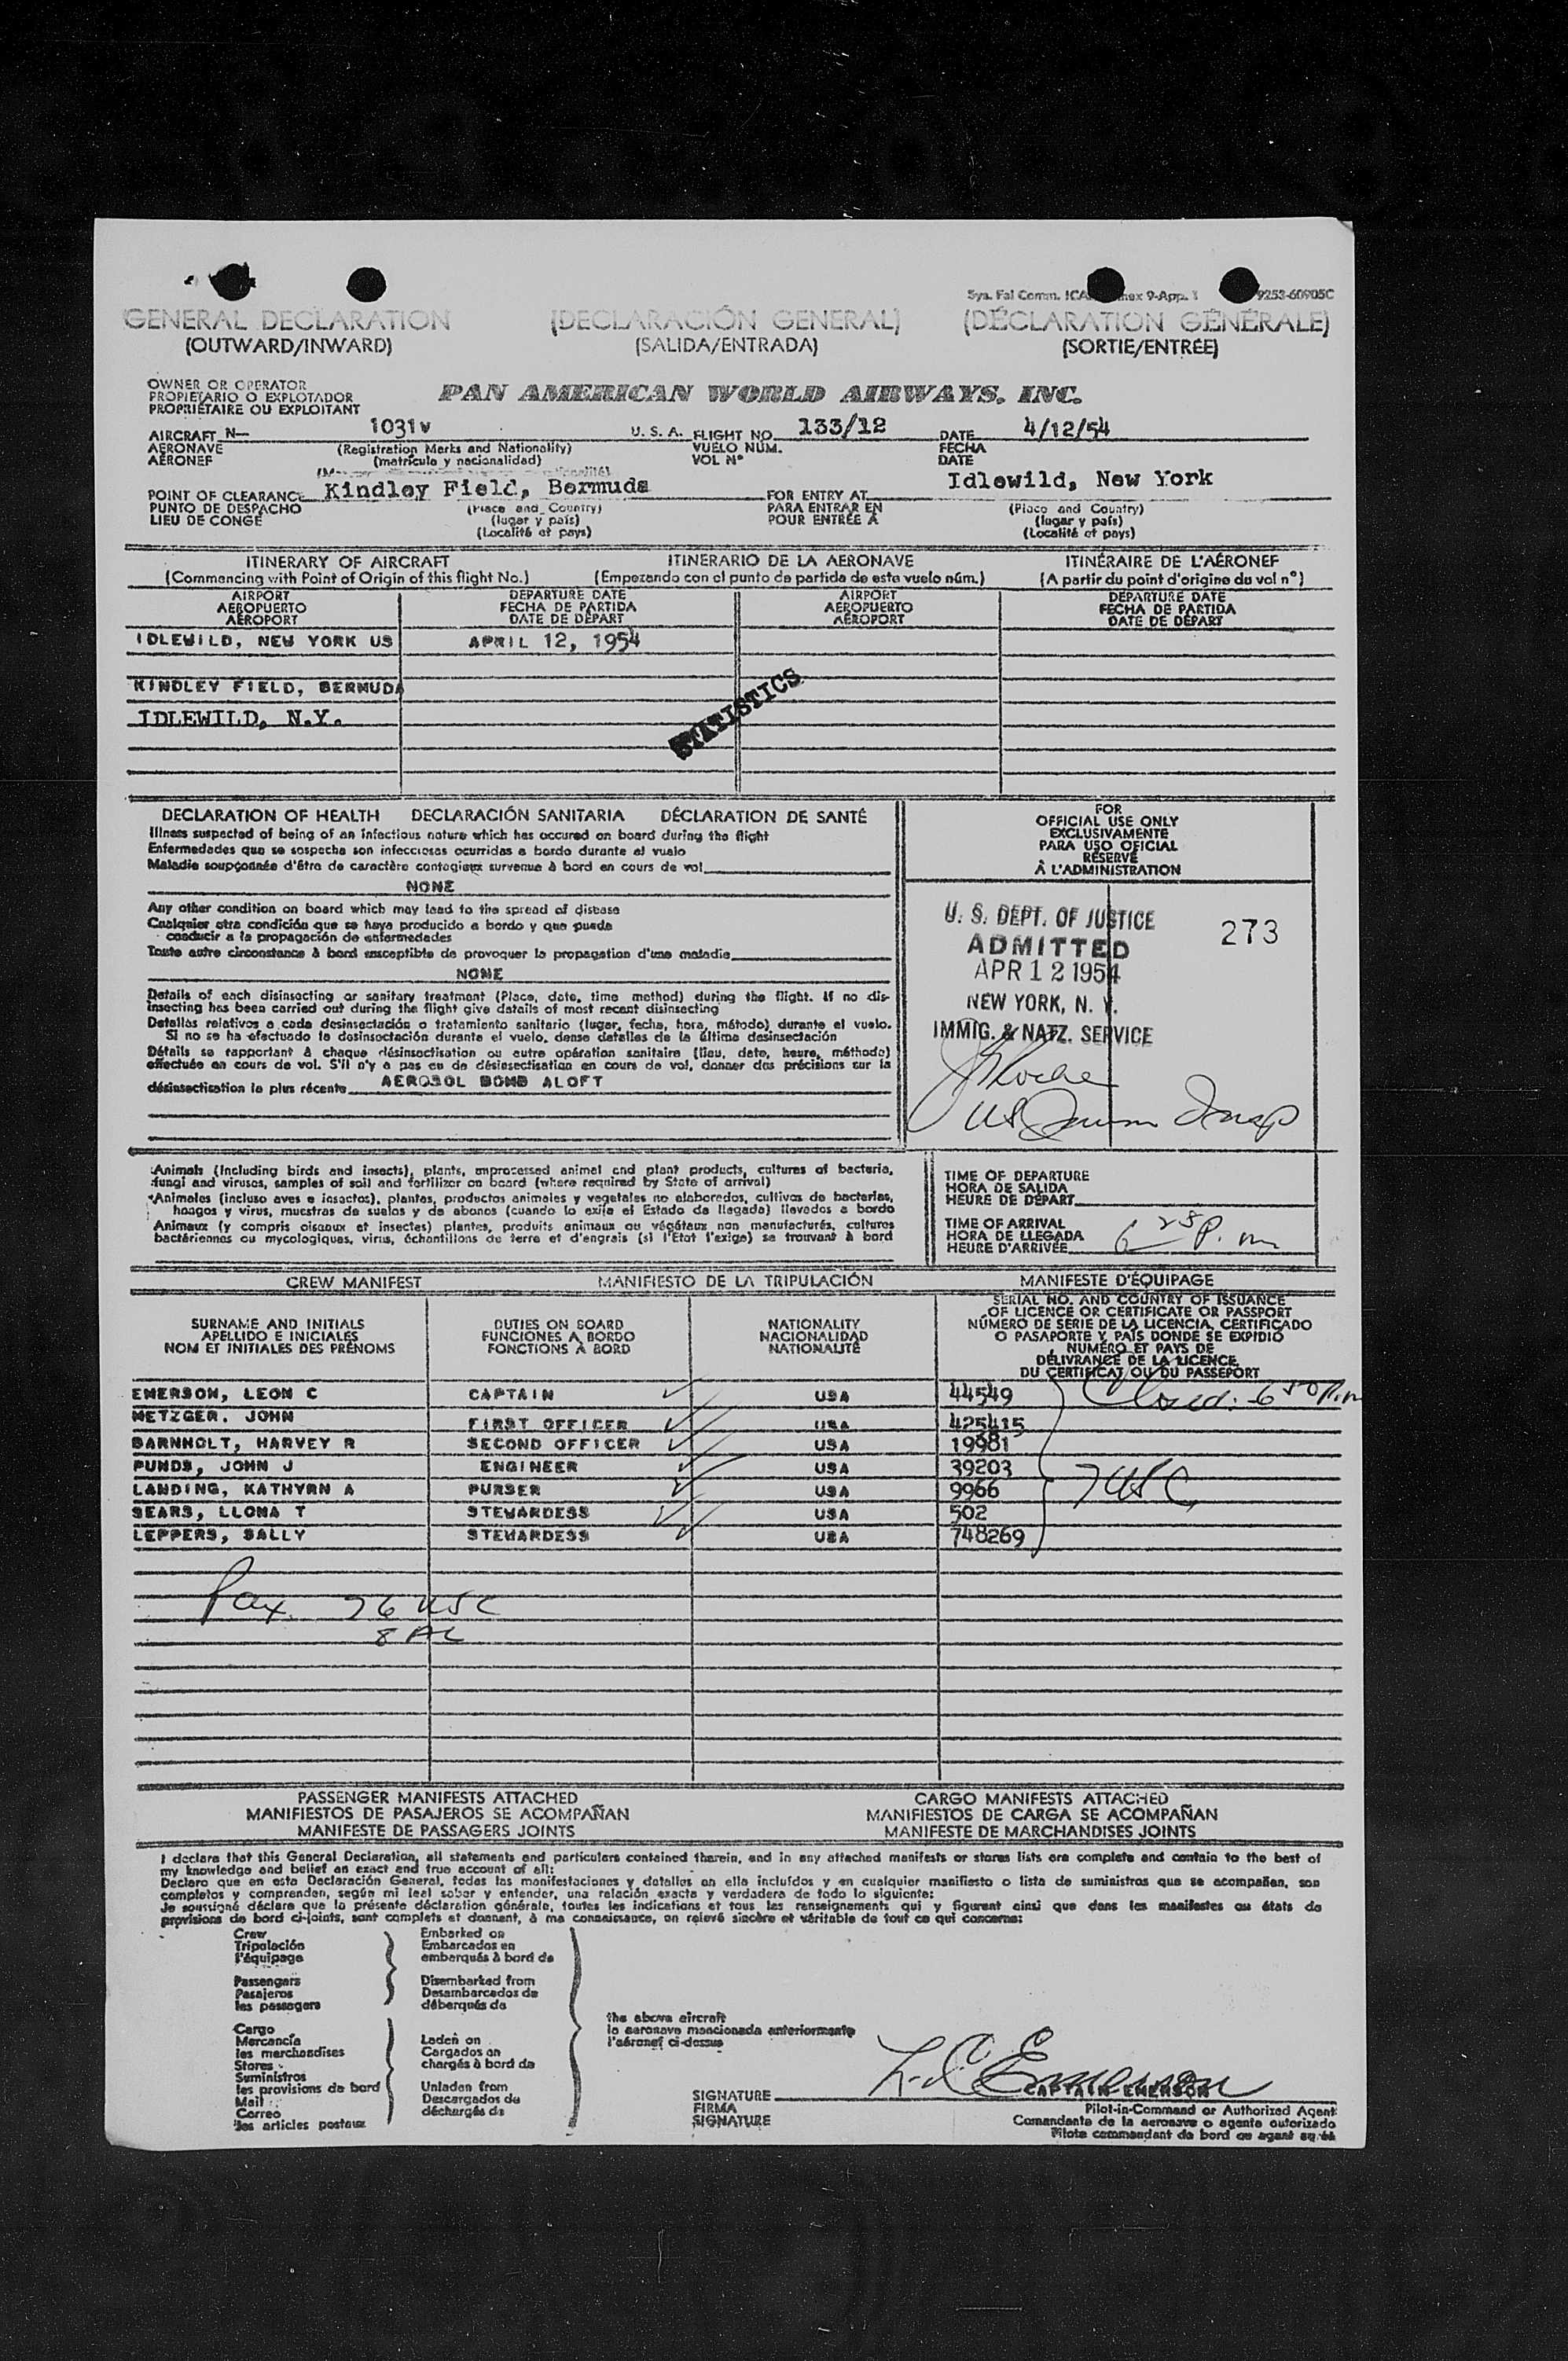 Sys. Fal Comm. ICA nex 9-App. 1 9253-60905C
GENERAL DECLARATION (DECLARACIÓN GENERAL) (DÉCLARATION GÉNÉRALE)
(OUTWARD/INWARD) (SALIDA/ENTRADA) (SORTIE/ENTRÉE)
OWNER OR OPERATOR
PROPIETARIO O EXPLOTADOR
PROPRIÉTAIRE OU EXPLOITANT
PAN AMERICAN WORLD AIRWAYS, INC.
AIRCRAFT N— 1031V U. S. A. FLIGHT NO. 133/12 DATE 4/12/54
AERONAVE (Registration Marks and Nationality) VUELO NÚM. FECHA
AÉRONEF (matrícula y nacionalidad) VOL Nº DATE
POINT OF CLEARANCE Kindley Field, Bermuda FOR ENTRY AT Idlewild, New York
PUNTO DE DESPACHO (Place and Country) PARA ENTRAR EN (Place and Country)
LIEU DE CONGÉ (lugar y país) POUR ENTRÉE À (lugar y país)
(Localité et pays) (Localité et pays)
ITINERARY OF AIRCRAFT ITINERARIO DE LA AERONAVE ITINÉRAIRE DE L'AÉRONEF
(Commencing with Point of Origin of this flight No.) (Empezando con el punto de partida de este vuelo núm.) (A partir du point d'origine du vol nº)
AIRPORT DEPARTURE DATE AIRPORT DEPARTURE DATE
AEROPUERTO FECHA DE PARTIDA AEROPUERTO FECHA DE PARTIDA
AÉROPORT DATE DE DÉPART AÉROPORT DATE DE DÉPART
IDLEWILD, NEW YORK US APRIL 12, 1954
KINDLEY FIELD, BERMUDA
STATISTICS
IDLEWILD, N.Y.
DECLARATION OF HEALTH DECLARACIÓN SANITARIA DÉCLARATION DE SANTÉ
Illness suspected of being of an infectious nature which has occured on board during the flight
Enfermedades que se sospecha son infecciosas ocurridas a bordo durante el vuelo
Maladie soupçonnée d'être de caractère contagieux survenue à bord en cours de vol
NONE
Any other condition on board which may lead to the spread of disease
Cualquier otra condición que se haya producido a bordo y que pueda
conducir a la propagación de enfermedades
Toute autre circonstance à bord susceptible de provoquer la propagation d'une maladie
NONE
Details of each disinsecting or sanitary treatment (Place, date, time method) during the flight. If no dis-
insecting has been carried out during the flight give details of most recent disinsecting
Detalles relativos a cada desinsectación o tratamiento sanitario (lugar, fecha, hora, método) durante el vuelo.
Si no se ha efectuado la desinsectación durante el vuelo, dense detalles de la última desinsectación
Détails se rapportant à chaque désinsectisation ou autre opération sanitaire (lieu, date, heure, méthode)
effectuée en cours de vol. S'il n'y a pas eu de désinsectisation en cours de vol, donner des précisions sur la
désinsectisation la plus récente AEROSOL BOMB ALOFT
FOR
OFFICIAL USE ONLY
EXCLUSIVAMENTE
PARA USO OFICIAL
RÉSERVÉ
À L'ADMINISTRATION
U. S. DEPT. OF JUSTICE
ADMITTED 273
APR 12 1954
NEW YORK, N. Y.
IMMIG. & NATZ. SERVICE
US Insp
Animals (including birds and insects), plants, unprocessed animal and plant products, cultures of bacteria,
fungi and viruses, samples of soil and fertilizer on board (where required by State of arrival)
Animales (incluso aves e insectos), plantas, productos animales y vegetales no elaborados, cultivos de bacterias,
hongos y virus, muestras de suelos y de abonos (cuando lo exija el Estado de llegada) llevados a bordo
Animaux (y compris oiseaux et insectes) plantes, produits animaux ou végétaux non manufacturés, cultures
bactériennes ou mycologiques, virus, échantillons de terre et d'engrais (si l'État l'exige) se trouvant à bord
TIME OF DEPARTURE
HORA DE SALIDA
HEURE DE DÉPART
TIME OF ARRIVAL
HORA DE LLEGADA
HEURE D'ARRIVÉE 6 25 P. m
CREW MANIFEST MANIFIESTO DE LA TRIPULACIÓN MANIFESTE D'ÉQUIPAGE
SURNAME AND INITIALS
APELLIDO E INICIALES
NOM ET INITIALES DES PRÉNOMS
DUTIES ON BOARD
FUNCIONES A BORDO
FONCTIONS À BORD
NATIONALITY
NACIONALIDAD
NATIONALITÉ
SERIAL NO. AND COUNTRY OF ISSUANCE
OF LICENCE OR CERTIFICATE OR PASSPORT
NÚMERO DE SERIE DE LA LICENCIA, CERTIFICADO
O PASAPORTE Y PAÍS DONDE SE EXPIDIÓ
NUMÉRO ET PAYS DE
DÉLIVRANCE DE LA LICENCE
DU CERTIFICAT OU DU PASSEPORT
EMERSON, LEON C CAPTAIN USA 44549 Closed: 6 50 P.m
METZGER, JOHN FIRST OFFICER USA 425415
BARNHOLT, HARVEY R SECOND OFFICER USA 19981
PUNDS, JOHN J ENGINEER USA 39203
LANDING, KATHYRN A PURSER USA 9966 7 USC
SEARS, LLONA T STEWARDESS USA 502
LEPPERS, SALLY STEWARDESS USA 748269
Pax. 76 USC
8 AL
PASSENGER MANIFESTS ATTACHED CARGO MANIFESTS ATTACHED
MANIFIESTOS DE PASAJEROS SE ACOMPAÑAN MANIFIESTOS DE CARGA SE ACOMPAÑAN
MANIFESTE DE PASSAGERS JOINTS MANIFESTE DE MARCHANDISES JOINTS
I declare that this General Declaration, all statements and particulars contained therein, and in any attached manifests or stores lists are complete and contain to the best of
my knowledge and belief an exact and true account of all:
Declaro que en esta Declaración General, todas las manifestaciones y detalles en ella incluídos y en cualquier manifiesto o lista de suministros que se acompañen, son
completos y comprenden, según mi leal saber y entender, una relación exacta y verdadera de todo lo siguiente:
Je soussigné déclare que la présente déclaration générale, toutes les indications et tous les renseignements qui y figurent ainsi que dans les manifestes ou états de
provisions de bord ci-joints, sont complets et donnent, à ma connaissance, un relevé sincère et véritable de tout ce qui concerne:
Crew
Tripulación
l'équipage
Passengers
Pasajeros
les passagers
Cargo
Mercancía
les marchandises
Stores
Suministros
les provisions de bord
Mail
Correo
les articles postaux
Embarked on
Embarcados en
embarqués à bord de
Disembarked from
Desembarcados de
débarqués de
Laden on
Cargados en
chargés à bord de
Unladen from
Descargados de
déchargés de
the above aircraft
la aeronave mencionada anteriormente
l'aéronef ci-dessus
L. C. Emerson
SIGNATURE CAPTAIN EMERSON
FIRMA Pilot-in-Command or Authorized Agent
SIGNATURE Comandante de la aeronave o agente autorizado
Pilote commandant de bord ou agent agréé